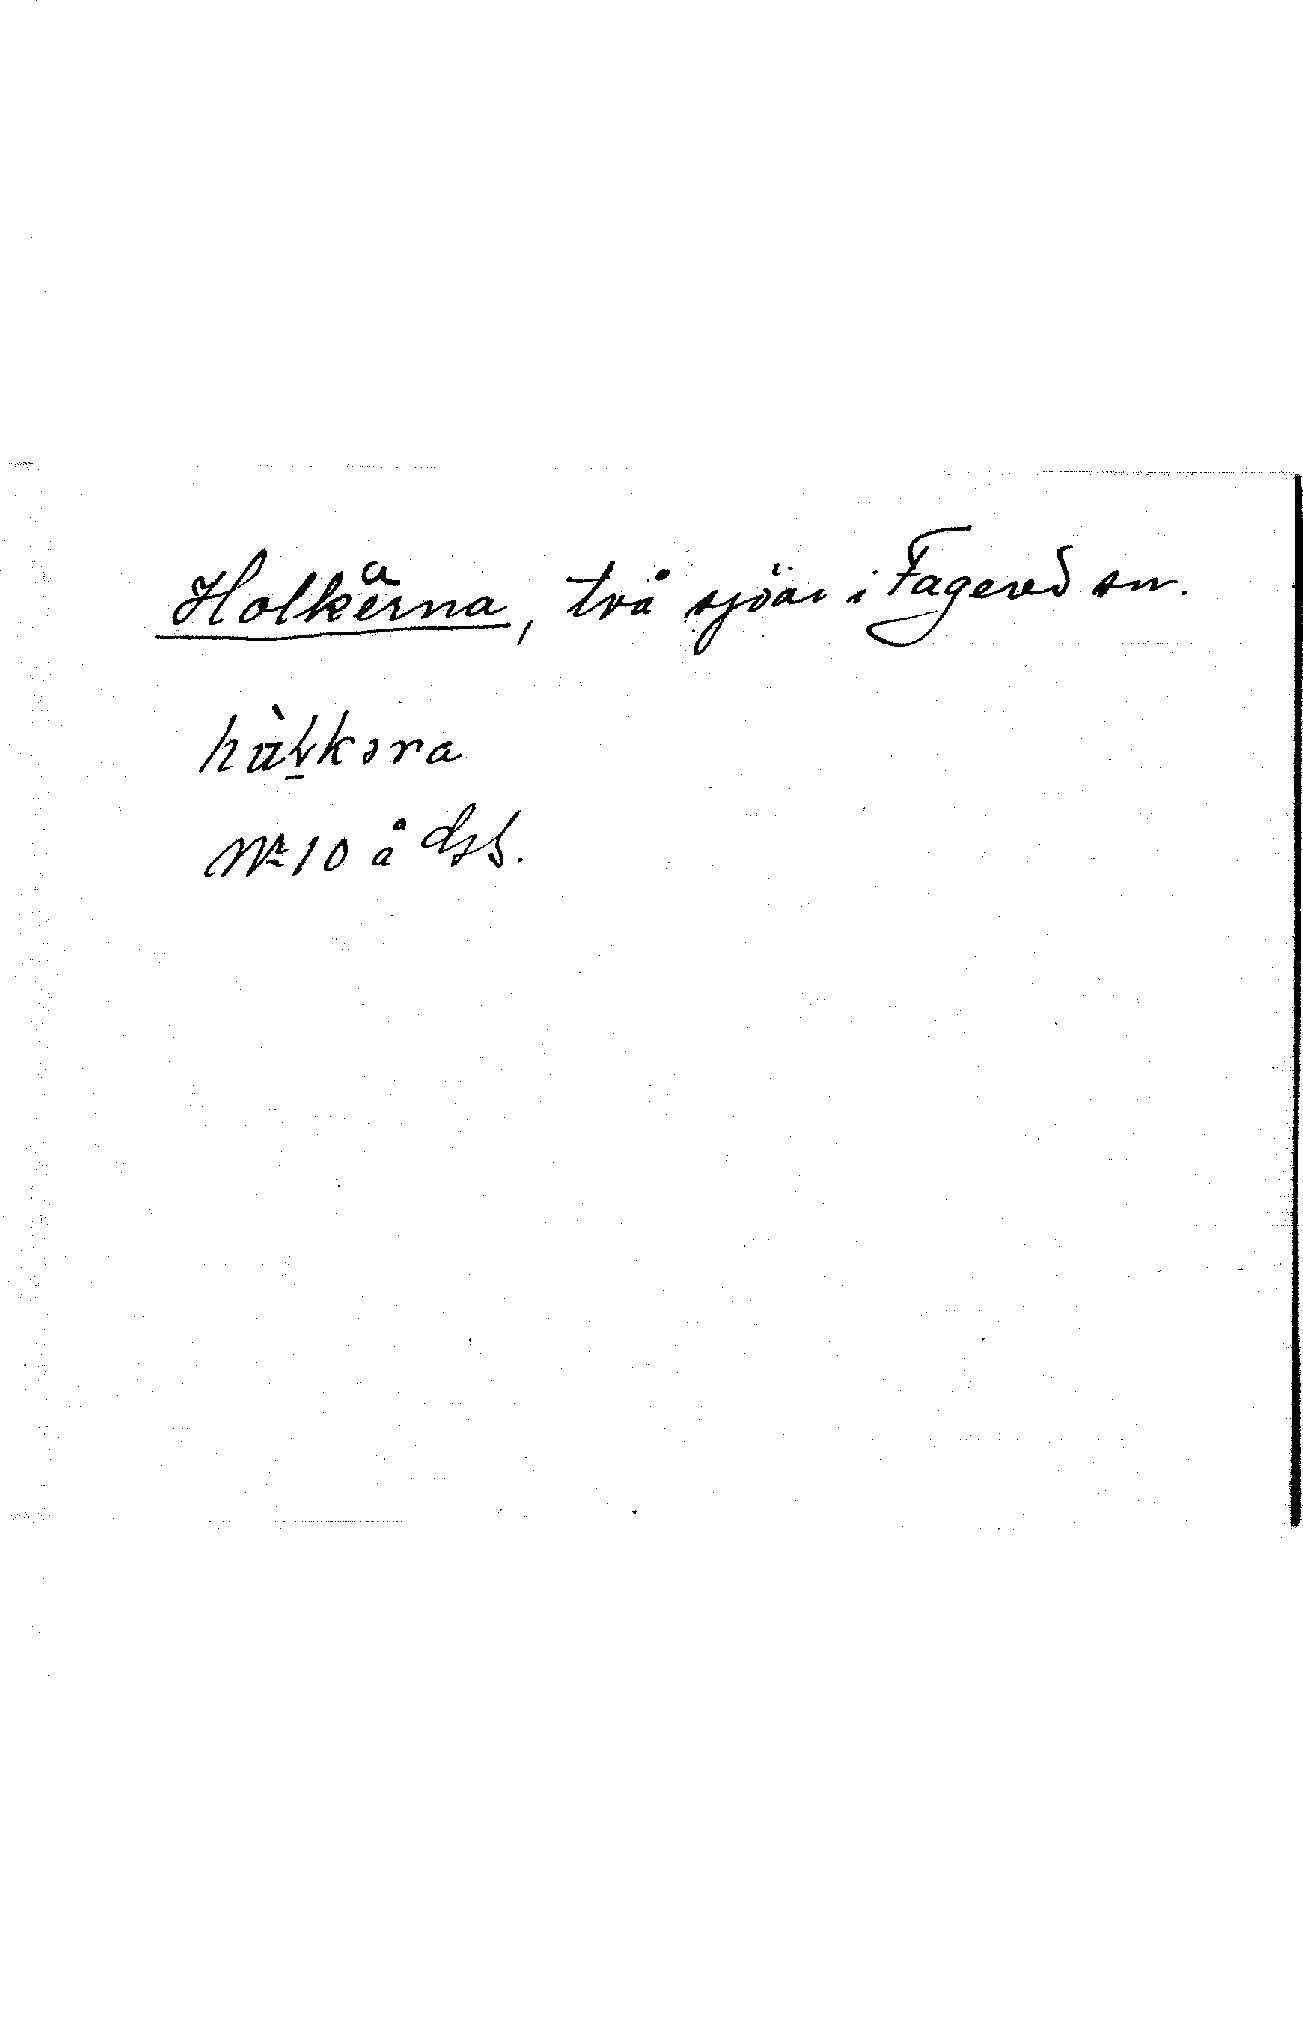 Holkärna, två sjöar i Fagered sn.
hùļkəra
№ 10 å Gsb.